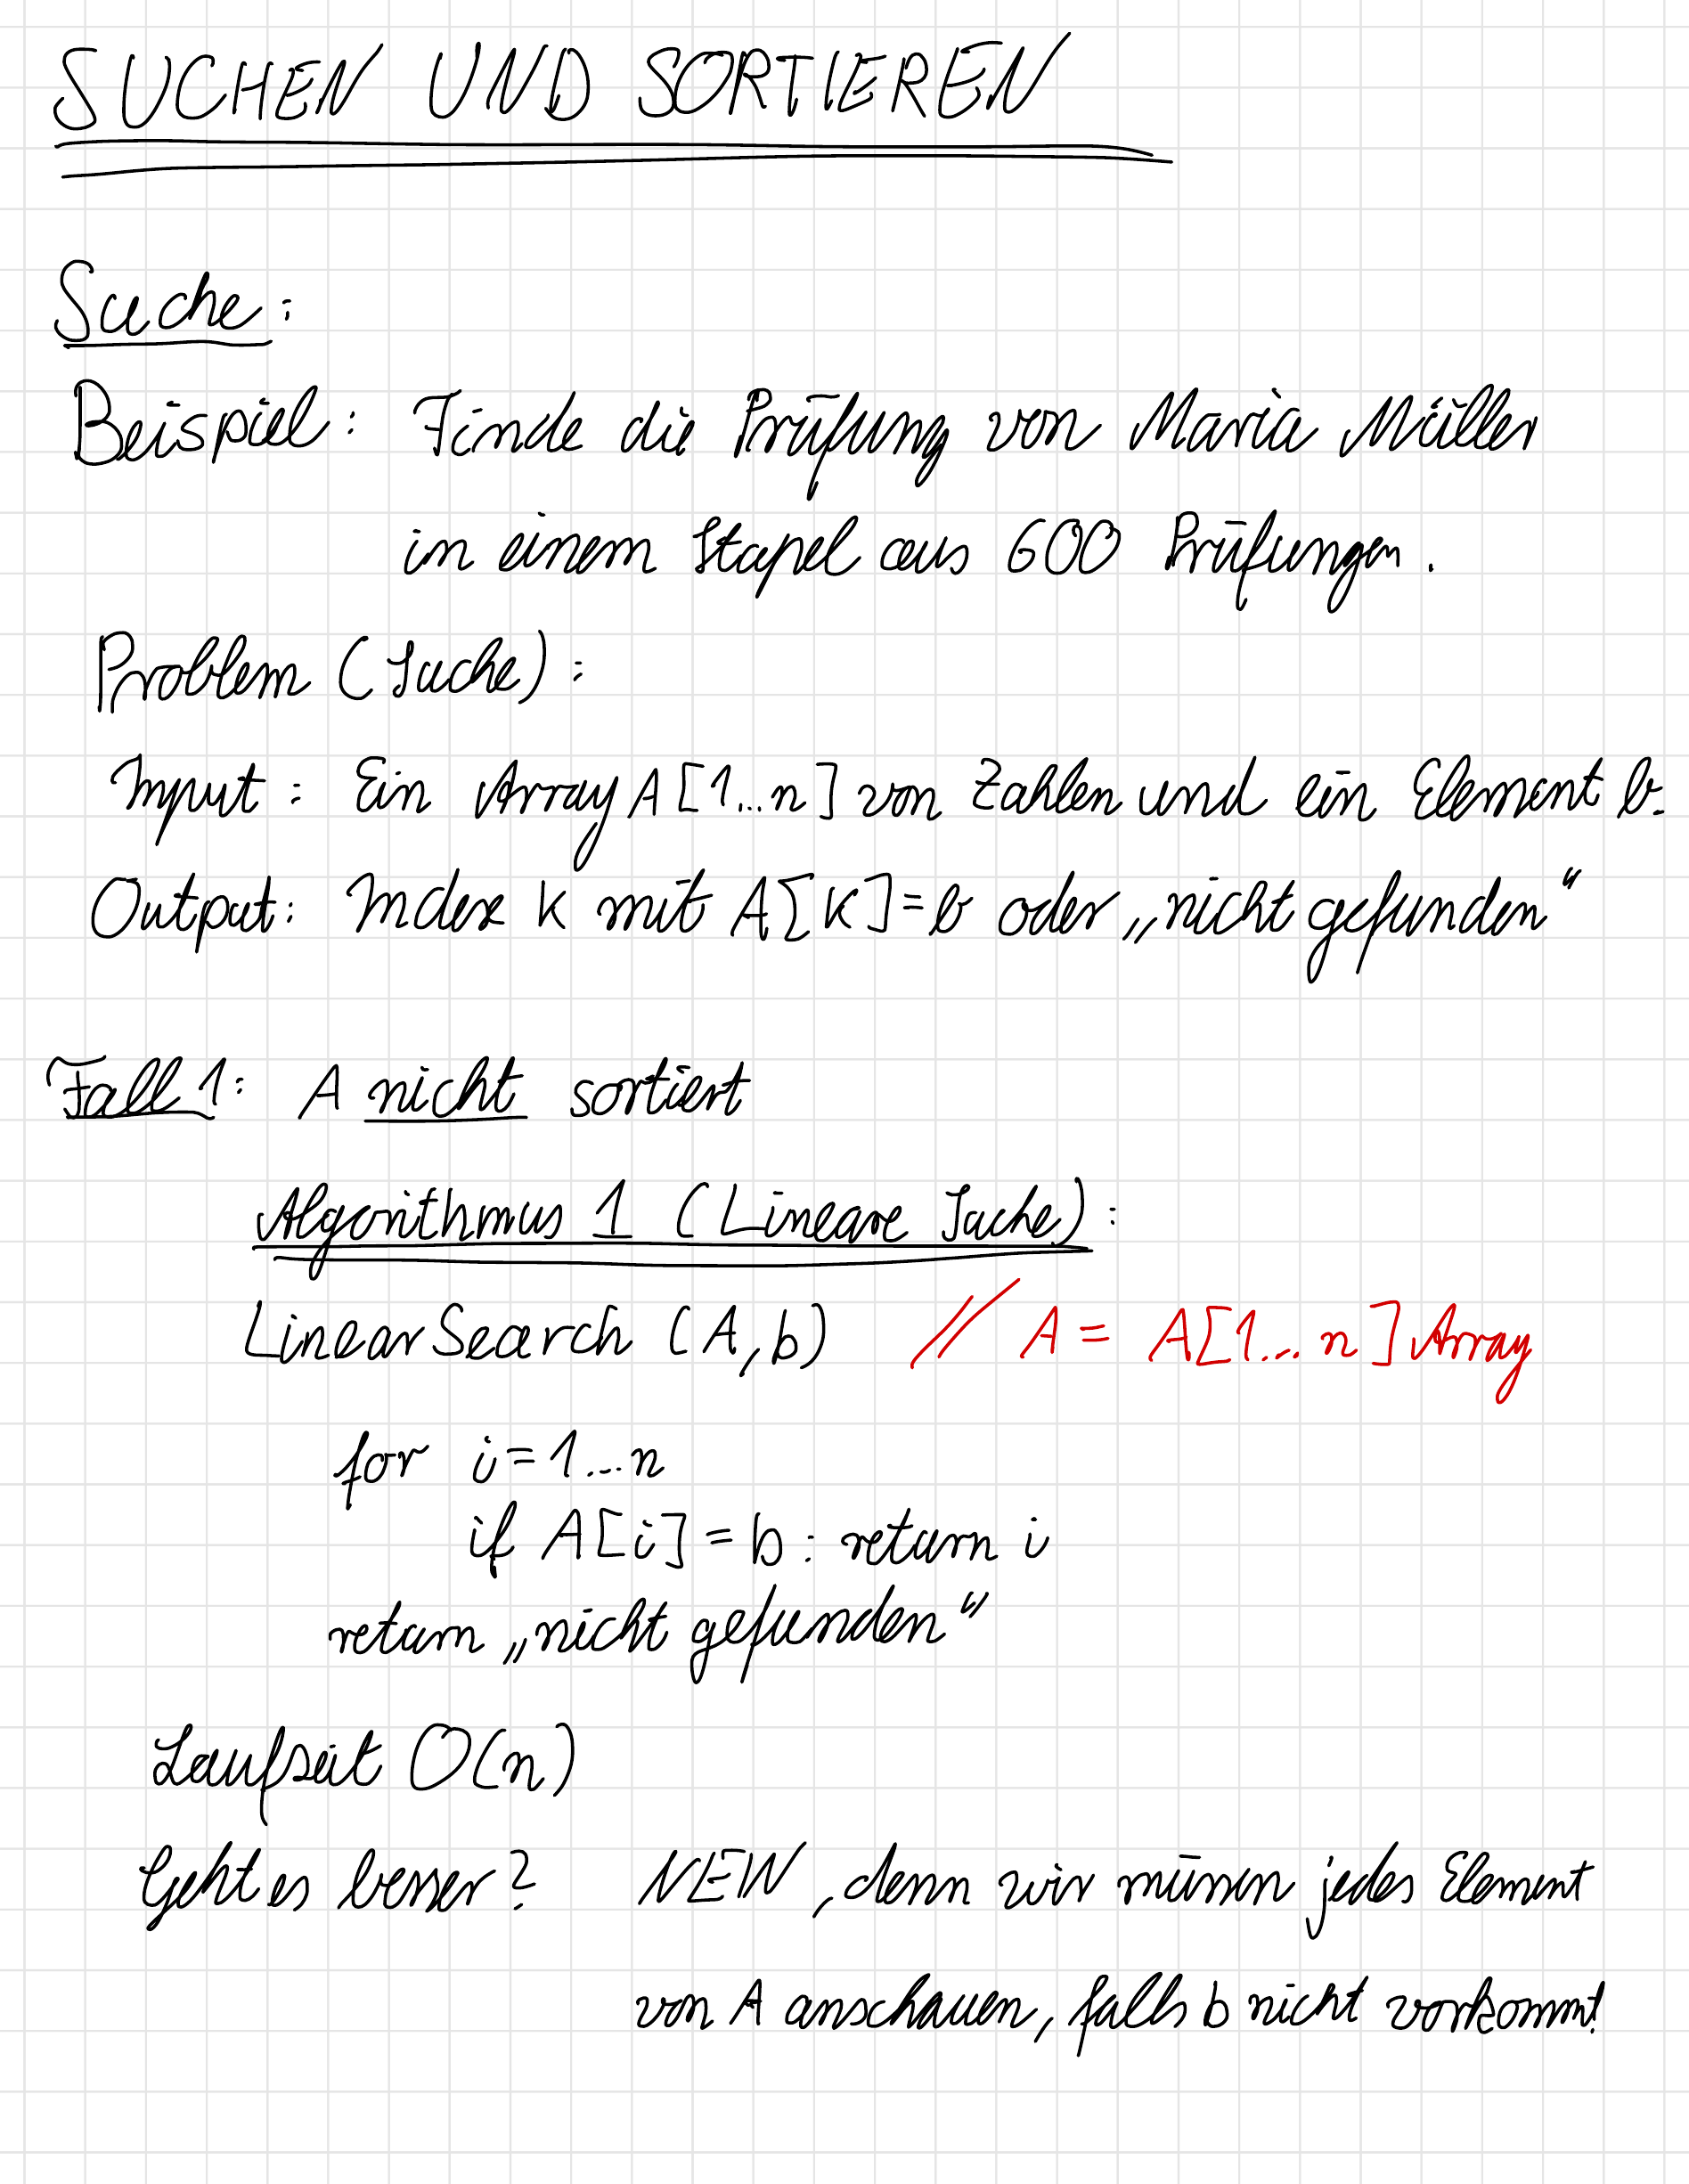 SUCHEN UND SORTIEREN
Suche:
Beispiel: Finde die Prüfung von Maria Müller
in einem Stapel aus 600 Prüfungen.
Problem (Suche):
Input: Ein Array A[1...n] von Zahlen und ein Element b.
Output: Index k mit A[k]=b oder „nicht gefunden“
Fall 1: A nicht sortiert
Algorithmus 1 (Lineare Suche):
LinearSearch (A,b) // A = A[1...n] Array
for i=1...n
if A[i]=b: return i
return „nicht gefunden“
Laufzeit O(n)
Geht es besser? NEIN, denn wir müssen jedes Element
von A anschauen, falls b nicht vorkommt!